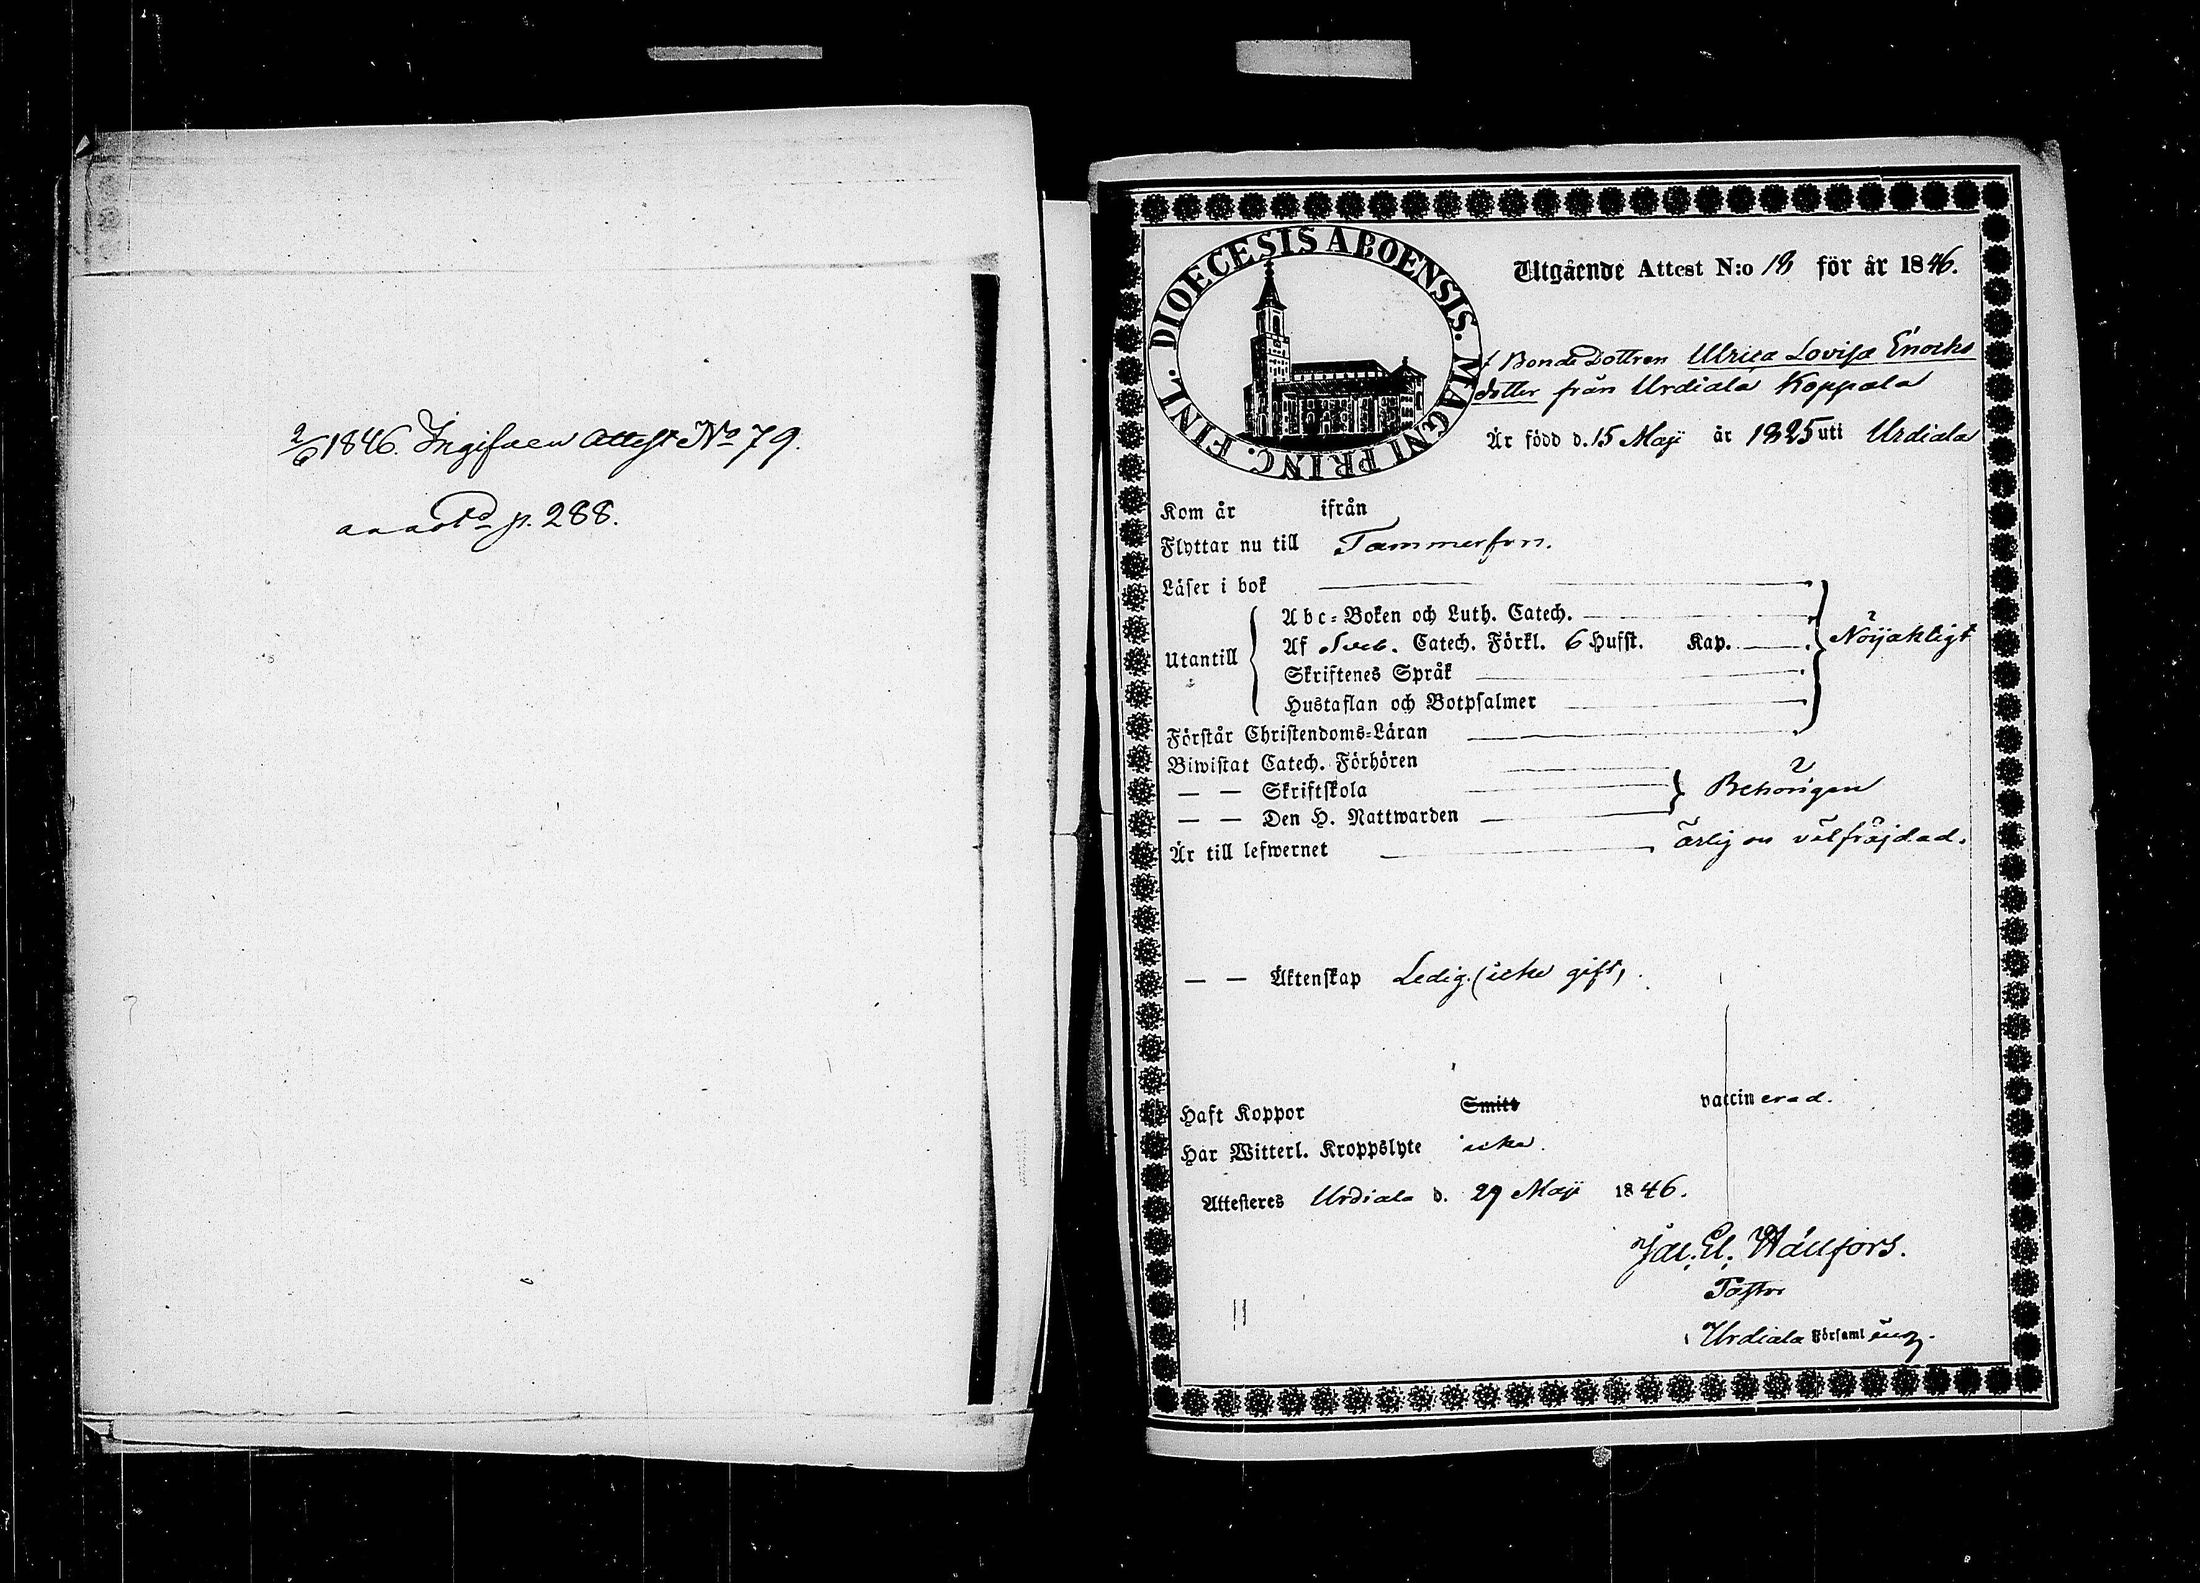 2/6 1846. Ingifven Attest No 79.
annotd p. 288.
DIOECESIS ABOENSIS. MAGNI PRINC. FINL.
Utgående Attest N:o 18 för år 1846.
f Bonde Dottren Ulrica Lovisa Enochs
dotter från Urdiala Koppala
Är född d. 15 Maji år 1825 uti Urdiala
Kom år ifrån
Flyttar nu till Tammerfors.
Läser i bok
Abc-Boken och Luth. Catech.
Utantill
Af Sveb. Catech. Förkl. 6 Hufst. Kap.
Nöijaktigt
Skriftenes Språk
Hustaflan och Botpsalmer
Förstår Christendoms-Läran
Biwistat Catech. Förhören
— — Skriftskola
Behörigen
— — Den H. Nattwarden
Är till lefwernet ärlig oc välfräjdad.
— — Äktenskap Ledig. (icke gift,
Haft Koppor Smitt vaccinerad.
Har Witterl. Kroppslyte icke.
Attesteres Urdiala d. 29 Maji 1846.
Jac. El. Wallfors.
Pastor
i Urdiala Församling.